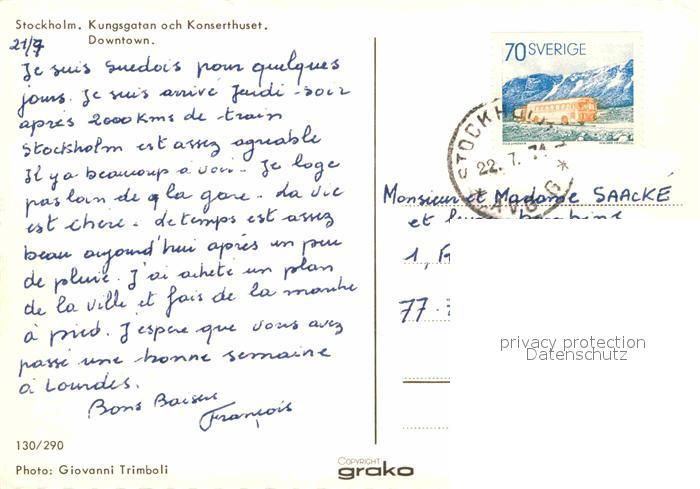 Stockholm. Kungsgatan och Konserthuset.
Downtown.
21/7
Je suis suedois pour quelques
jours. Je suis arrivé Jeudi-soir
après 2000 Kms de train
Stockholm est assez agreable
Il y a beaucoup a voir. Je loge
pas loin de la gare. La vie
est chere. de temps est assez
beau aujourd'hui après un peu
de pluie. J'ai acheté un plan
de la ville et fais de la marche
à pied. J'espere que vous avez
passé une bonne semaine
à Lourdes.
Bons Baisers
François
130/290
Photo: Giovanni Trimboli
COPYRIGHT
grako
70 SVERIGE
STOCKHOLM
22.7.74
AVG
Monsieur et Madame SAACKÉ
et leurs
1,
77
privacy protection
Datenschutz